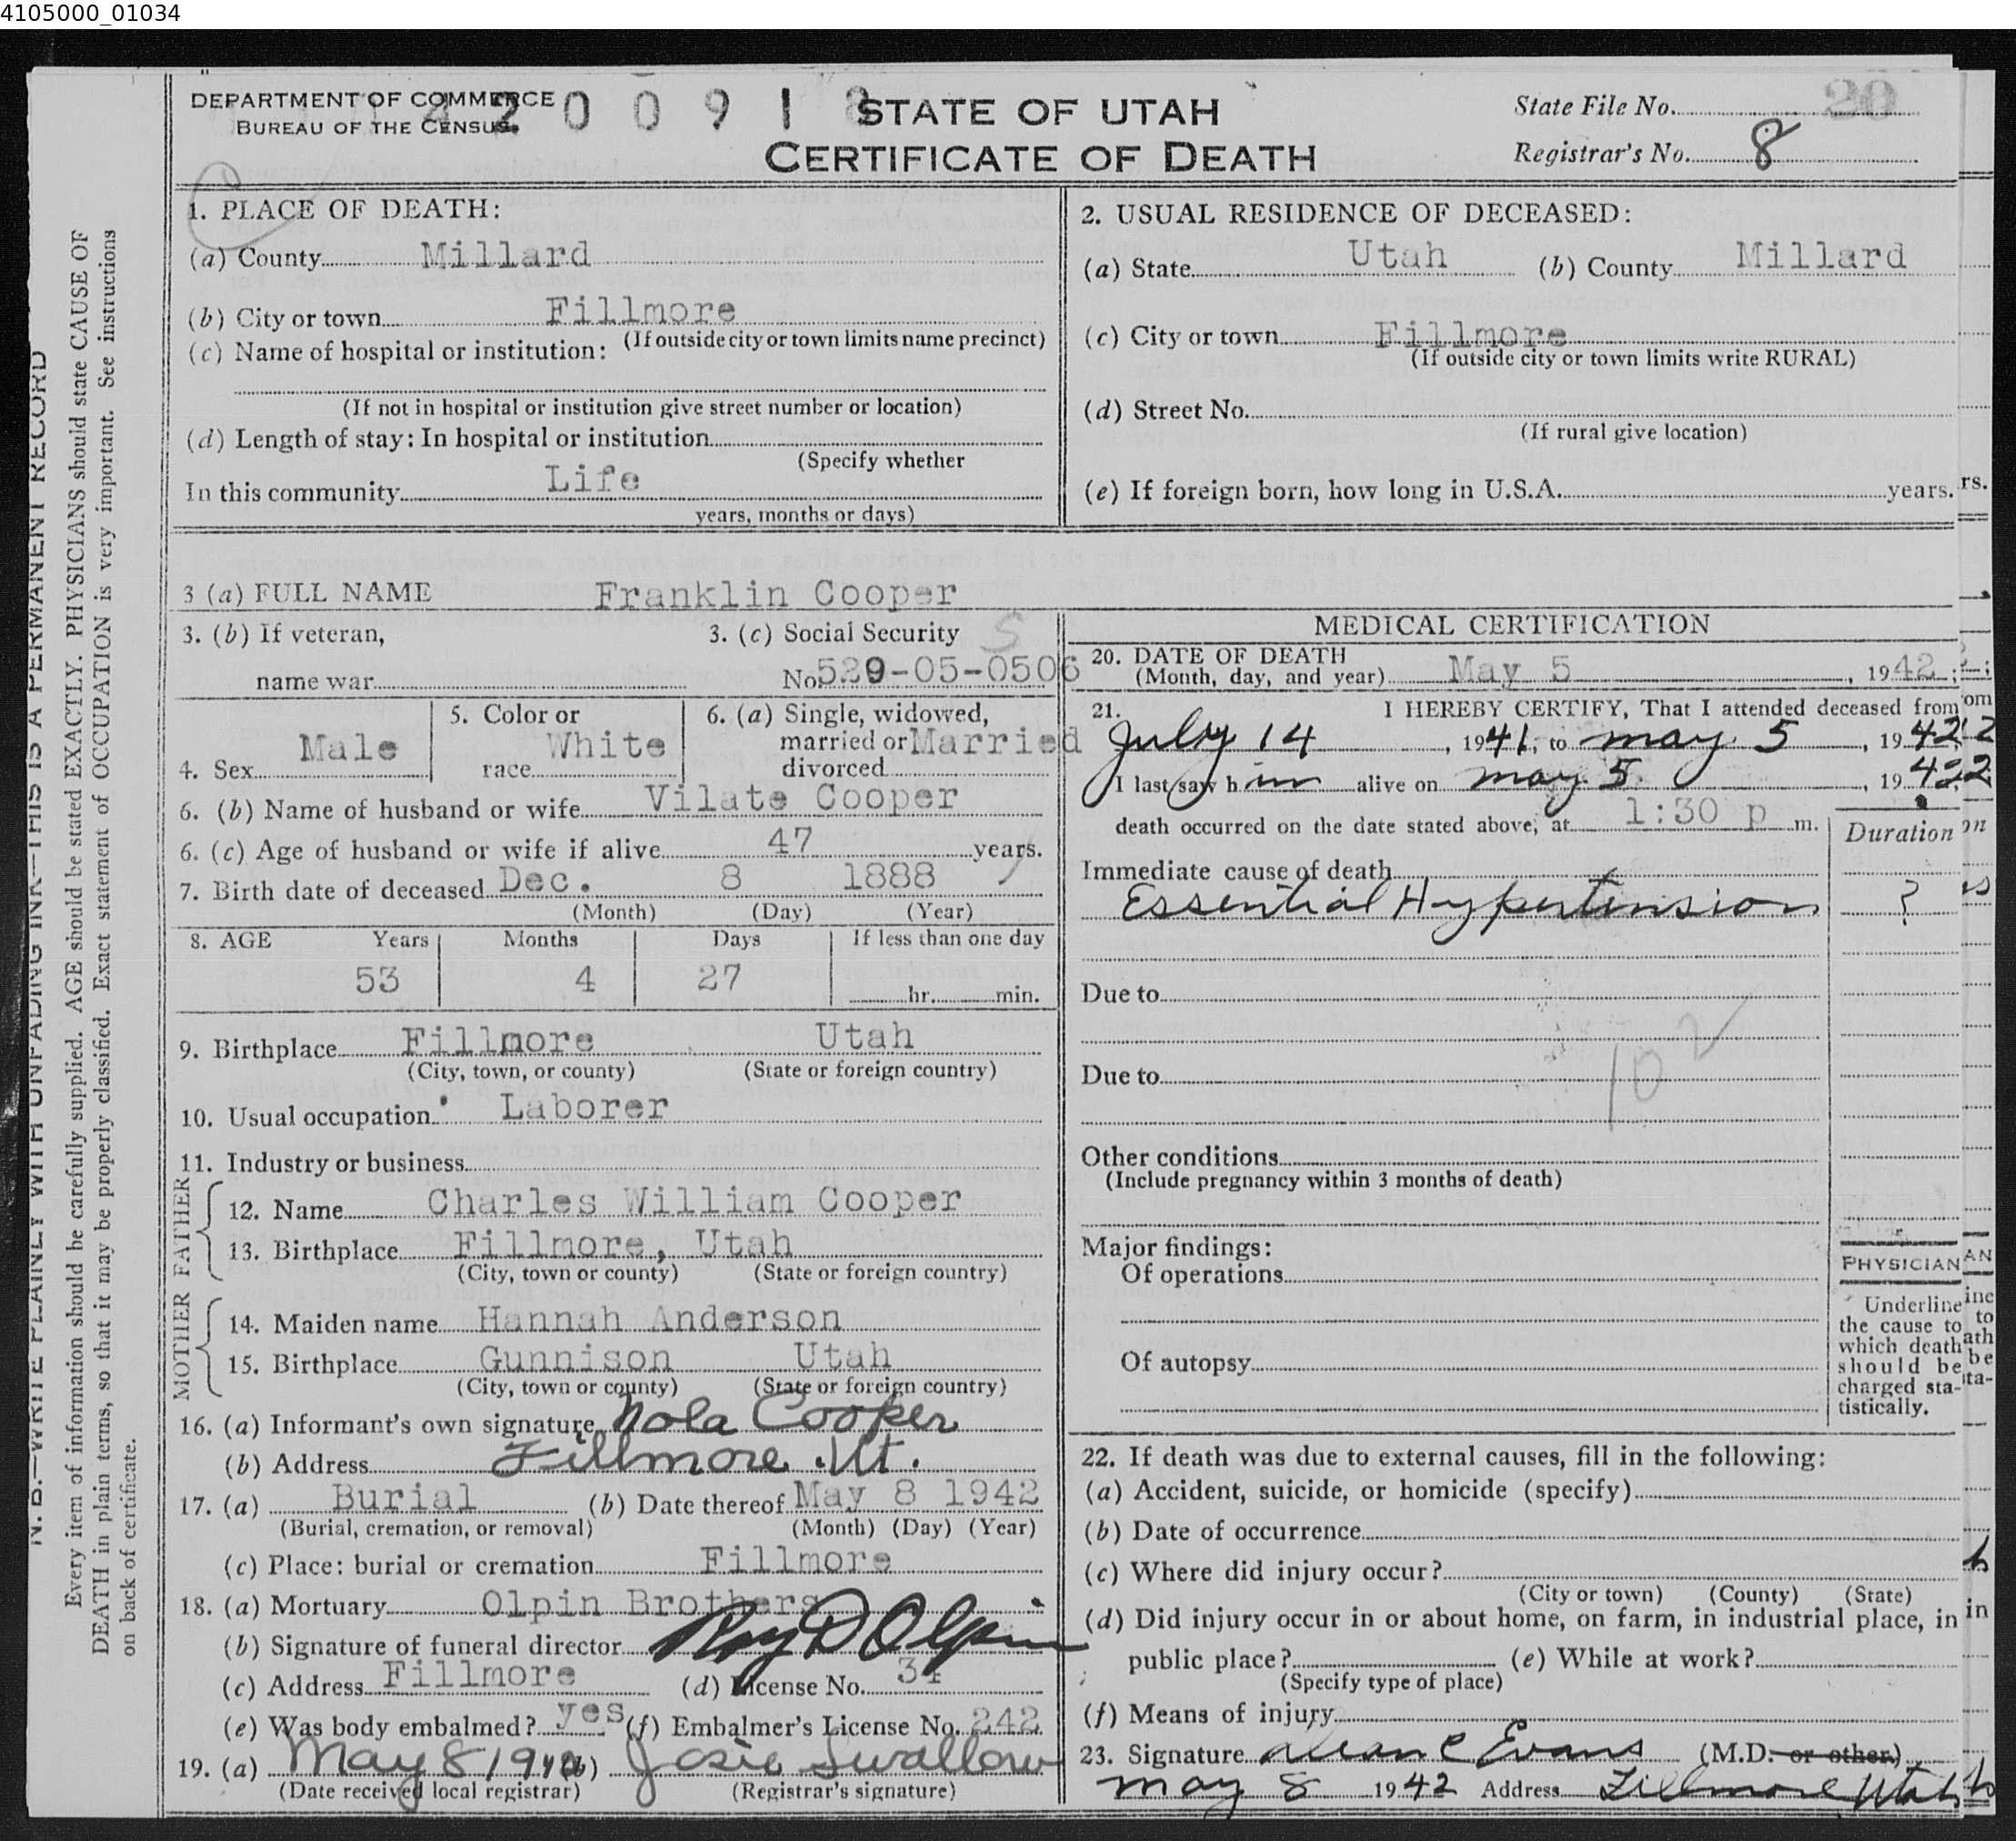 4105000_01034
DEPARTMENT OF COMMERCE
BUREAU OF THE CENSUS
2 0 0 9 1 8
STATE OF UTAH
CERTIFICATE OF DEATH
State File No. 20
Registrar's No. 8
1. PLACE OF DEATH:
(a) County Millard
(b) City or town Fillmore
(If outside city or town limits name precinct)
(c) Name of hospital or institution:
(If not in hospital or institution give street number or location)
(d) Length of stay: In hospital or institution
(Specify whether
In this community Life
years, months or days)
2. USUAL RESIDENCE OF DECEASED:
(a) State Utah (b) County Millard
(c) City or town Fillmore
(If outside city or town limits write RURAL)
(d) Street No.
(If rural give location)
(e) If foreign born, how long in U.S.A. years.
3 (a) FULL NAME Franklin Cooper
3. (b) If veteran,
name war
3. (c) Social Security
No. 529-05-0506
S
4. Sex Male
5. Color or
race White
6. (a) Single, widowed,
married or Married
divorced
6. (b) Name of husband or wife Vilate Cooper
6. (c) Age of husband or wife if alive 47 years.
7. Birth date of deceased Dec. 8 1888
(Month) (Day) (Year)
8. AGE Years Months Days If less than one day
53 4 27 hr. min.
9. Birthplace Fillmore Utah
(City, town, or county) (State or foreign country)
10. Usual occupation Laborer
11. Industry or business
FATHER
12. Name Charles William Cooper
13. Birthplace Fillmore, Utah
(City, town or county) (State or foreign country)
MOTHER
14. Maiden name Hannah Anderson
15. Birthplace Gunnison Utah
(City, town or county) (State or foreign country)
16. (a) Informant's own signature Nola Cooper
(b) Address Fillmore Ut.
17. (a) Burial (b) Date thereof May 8 1942
(Burial, cremation, or removal) (Month) (Day) (Year)
(c) Place: burial or cremation Fillmore
18. (a) Mortuary Olpin Brothers
(b) Signature of funeral director Roy D Olpin
(c) Address Fillmore (d) License No. 34
(e) Was body embalmed? yes (f) Embalmer's License No. 242
19. (a) May 8 1942 (b) Josie Swallow
(Date received local registrar) (Registrar's signature)
MEDICAL CERTIFICATION
20. DATE OF DEATH
(Month, day, and year) May 5, 1942;
21. I HEREBY CERTIFY, That I attended deceased from
July 14, 1941, to May 5, 1942
I last saw h im alive on May 5, 1942
death occurred on the date stated above, at 1:30 p m.
Duration
Immediate cause of death
Essential Hypertension ?
Due to
102
Due to
Other conditions
(Include pregnancy within 3 months of death)
Major findings:
Of operations
Of autopsy
PHYSICIAN
Underline
the cause to
which death
should be
charged sta-
tistically.
22. If death was due to external causes, fill in the following:
(a) Accident, suicide, or homicide (specify)
(b) Date of occurrence
(c) Where did injury occur?
(City or town) (County) (State)
(d) Did injury occur in or about home, on farm, in industrial place, in
public place? (e) While at work?
(Specify type of place)
(f) Means of injury
23. Signature Deane Evans (M.D. or other)
May 8 1942 Address Fillmore Utah
N. B.—WRITE PLAINLY WITH UNFADING INK—THIS IS A PERMANENT RECORD
Every item of information should be carefully supplied. AGE should be stated EXACTLY. PHYSICIANS should state CAUSE OF
DEATH in plain terms, so that it may be properly classified. Exact statement of OCCUPATION is very important. See instructions
on back of certificate.